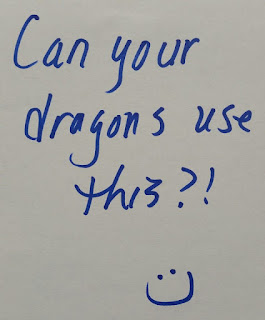 Can your
dragons use
this?!